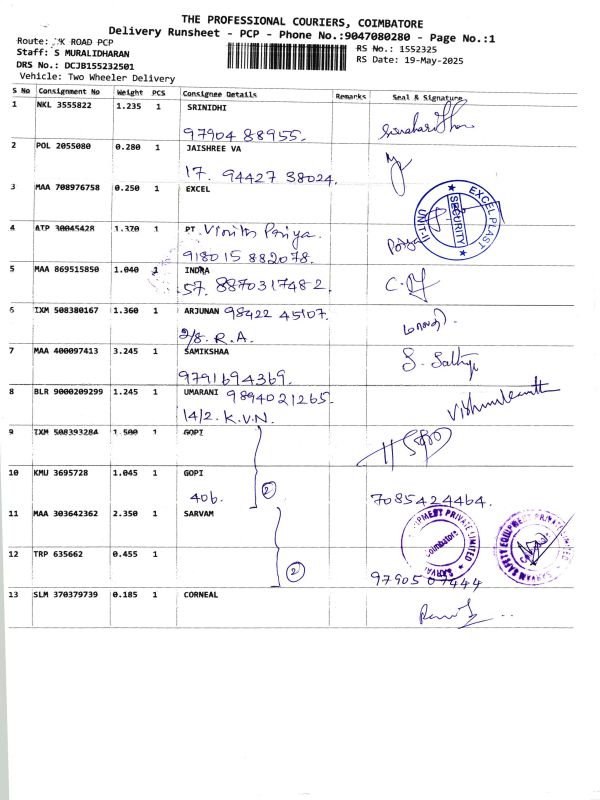 THE PROFESSIONAL COURIERS, COIMBATORE
Delivery Runsheet - PCP - Phone No.:9047080280 - Page No.:1
Route: K ROAD PCP
RS No.: 1552325
Staff: S MURALIDHARAN
RS Date: 19-May-2025
DRS No.: DCJB155232501
Vehicle: Two Wheeler Delivery
S No Consignment No Weight PCS Consignee Details Remarks Seal & Signature
1 NKL 3555822 1.235 1 SRINIDHI
97904 88955.
2 POL 2055080 0.280 1 JAISHREE VA
17. 94427 38024.
3 MAA 708976758 0.250 1 EXCEL
EXCEL PLAST UNIT-II SECURITY
4 ATP 30045428 1.370 1 PT Vinith Priya.
Priya
918015 882078.
5 MAA 869515850 1.040 1 INDRA
57. 8870317482.
6 IXM 508380167 1.360 1 ARJUNAN 98422 45107.
2/8. R.A.
7 MAA 400097413 3.245 1 SAMIKSHAA
9791694369.
8 BLR 9000209299 1.245 1 UMARANI 9894021265.
14/2. K.V.N.
9 IXM 508393284 1.500 1 GOPI
10 KMU 3695728 1.045 1 GOPI
406. 2 7085424464.
11 MAA 303642362 2.350 1 SARVAM
PMENT PRIVATE LIMITED Coimbatore SARVA
SARVAM SAFETY EQUIPMENT PRIVATE LIMITED
12 TRP 635662 0.455 1
2 9790507444
13 SLM 370379739 0.185 1 CORNEAL